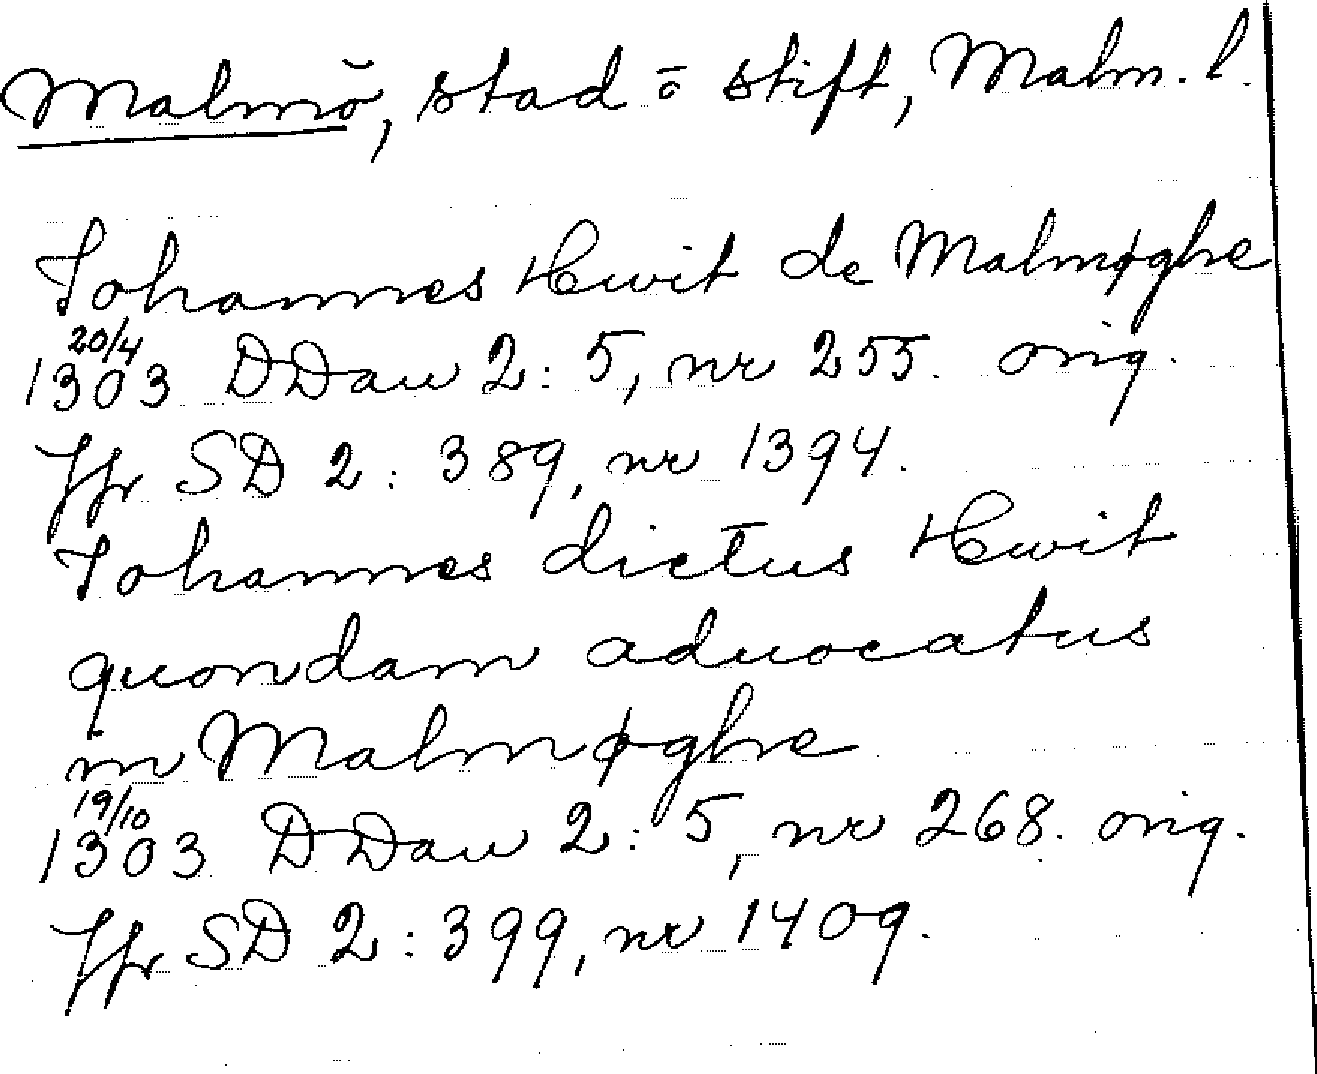 Malmö, stad o stift, Malm. l.
Johannes Hwit de Malmøghe
20/4
1303 DDan 2: 5, nr 255. orig.
Jfr SD 2: 389, nr 1394.
Johannes dictus Hwit
quondam aduocatus
in Malmøghe
19/10
1303 DDan 2: 5, nr 268. orig.
Jfr SD 2: 399, nr 1409.